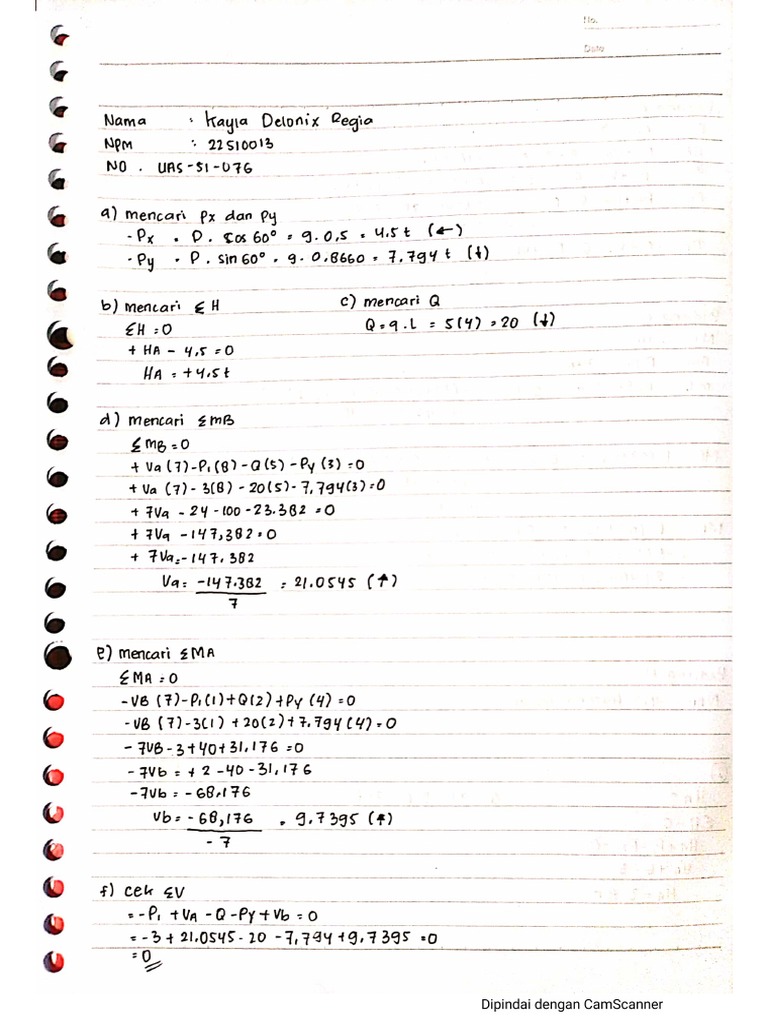 No.
Date
Nama : Kayla Delonix Regia
NPM : 22510013
NO . UAS-S1-076
a) mencari Px dan Py
- Px = P . cos 60° = 9 . 0,5 = 4.5 t (←)
- Py = P . sin 60° = 9 . 0.8660 = 7.794 t (↓)
b) mencari ΣH
ΣH = 0
+ HA - 4,5 = 0
HA = +4,5 t
c) mencari Q
Q = q . L = 5(4) = 20 (↓)
d) mencari ΣMB
ΣMB = 0
+ Va (7) - P1(8) - Q(5) - Py (3) = 0
+ Va (7) - 3(8) - 20(5) - 7,794(3) = 0
+ 7Va - 24 - 100 - 23.382 = 0
+ 7Va - 147,382 = 0
+ 7Va = -147.382
Va = -147.382 = 21.0545 (↑)
7
e) mencari ΣMA
ΣMA = 0
-VB (7) - P1(1) + Q(2) + Py (4) = 0
-VB (7) - 3(1) + 20(2) + 7,794(4) = 0
- 7VB - 3 + 40 + 31,176 = 0
- 7Vb = + 2 - 40 - 31,176
- 7Vb = - 68,176
Vb = - 68,176 = 9.7395 (↑)
- 7
f) cek ΣV
= - P1 + VA - Q - Py + Vb = 0
= - 3 + 21.0545 - 20 - 7,794 + 9.7395 = 0
= 0
Dipindai dengan CamScanner